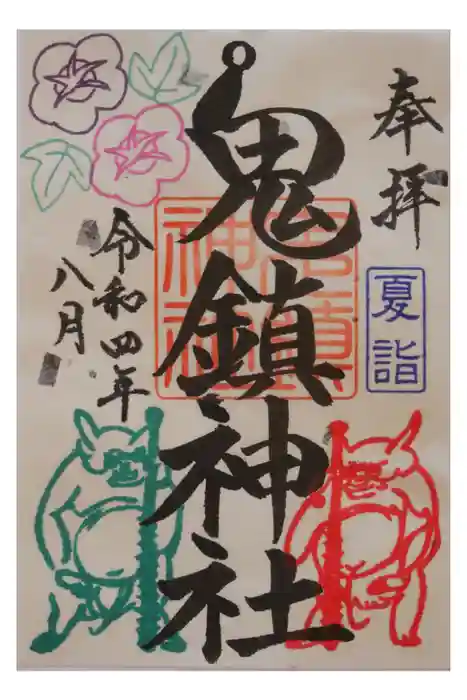 奉拝
夏詣
鬼鎮神社
鬼鎮神社
令和四年
八月